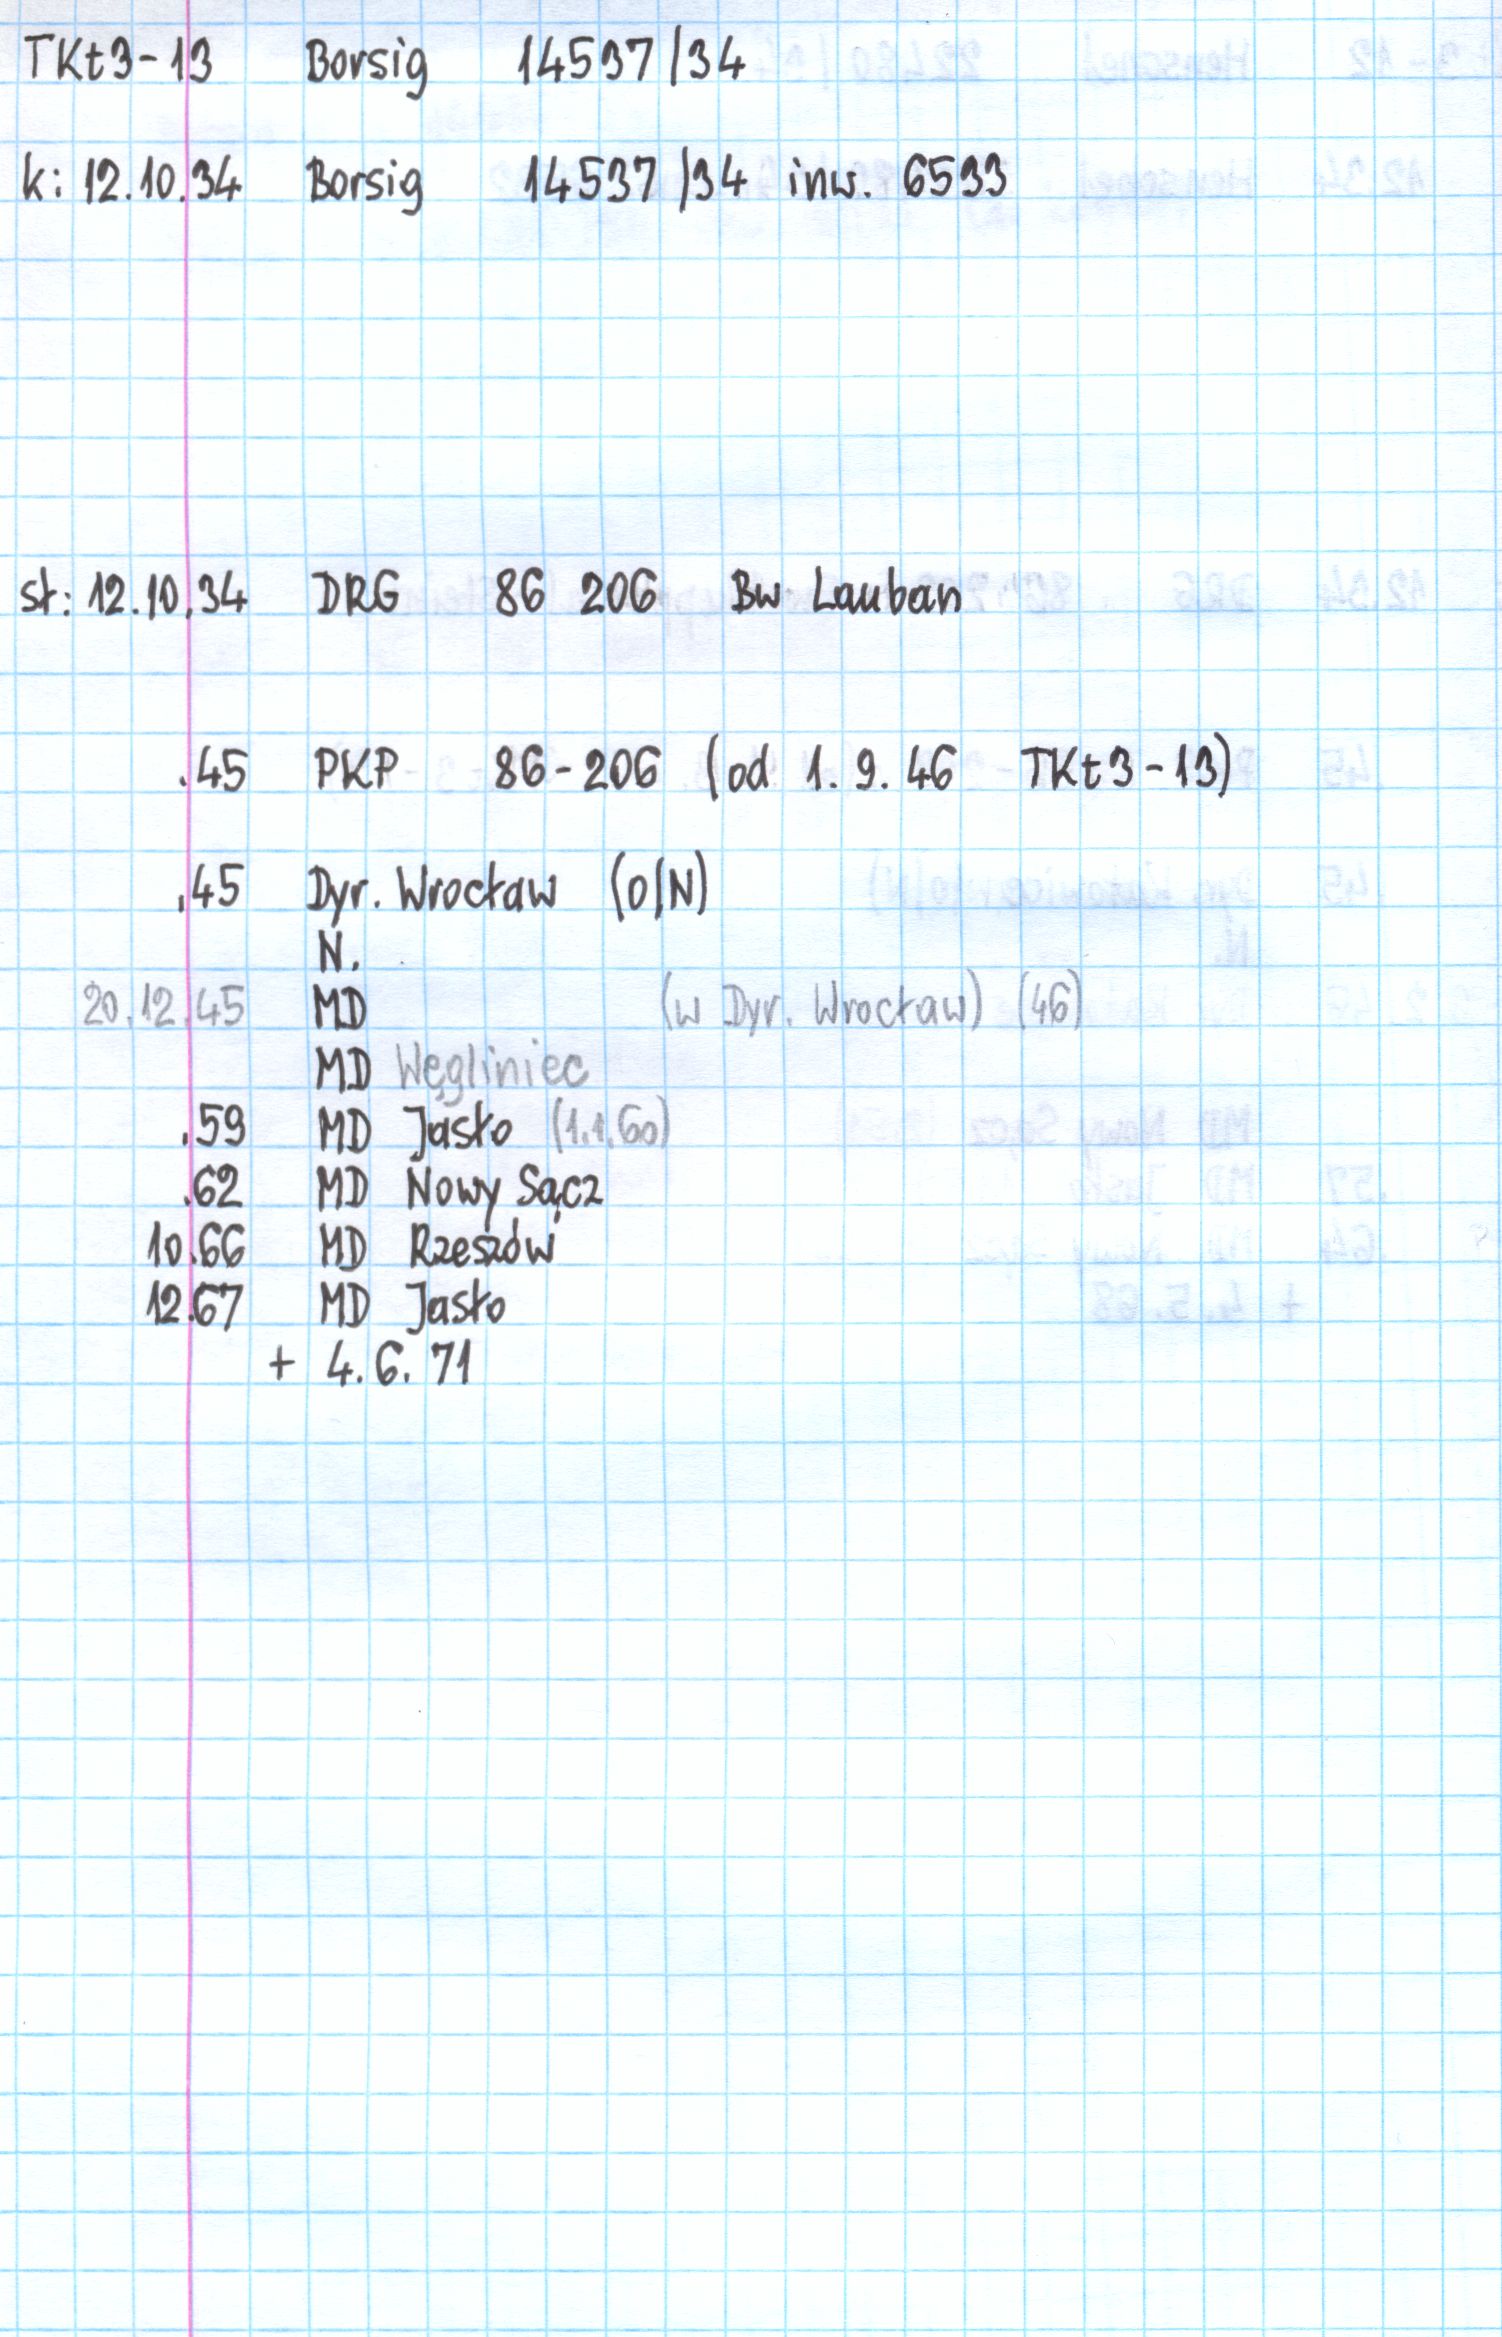 TKt3-13 Borsig 14537/34
k: 12.10.34 Borsig 14537/34 inw. 6533
st: 12.10.34 DRG 86 206 Bw Lauban
.45 PKP 86-206 (od 1.9.46 TKt3-13)
.45 Dyr. Wrocław (O/N)
N.
20.12.45 MD (w Dyr. Wrocław) (46)
MD Węgliniec
.59 MD Jasło (1.1.60)
.62 MD Nowy Sącz
10.66 MD Rzeszów
12.67 MD Jasło
+ 4.6.71